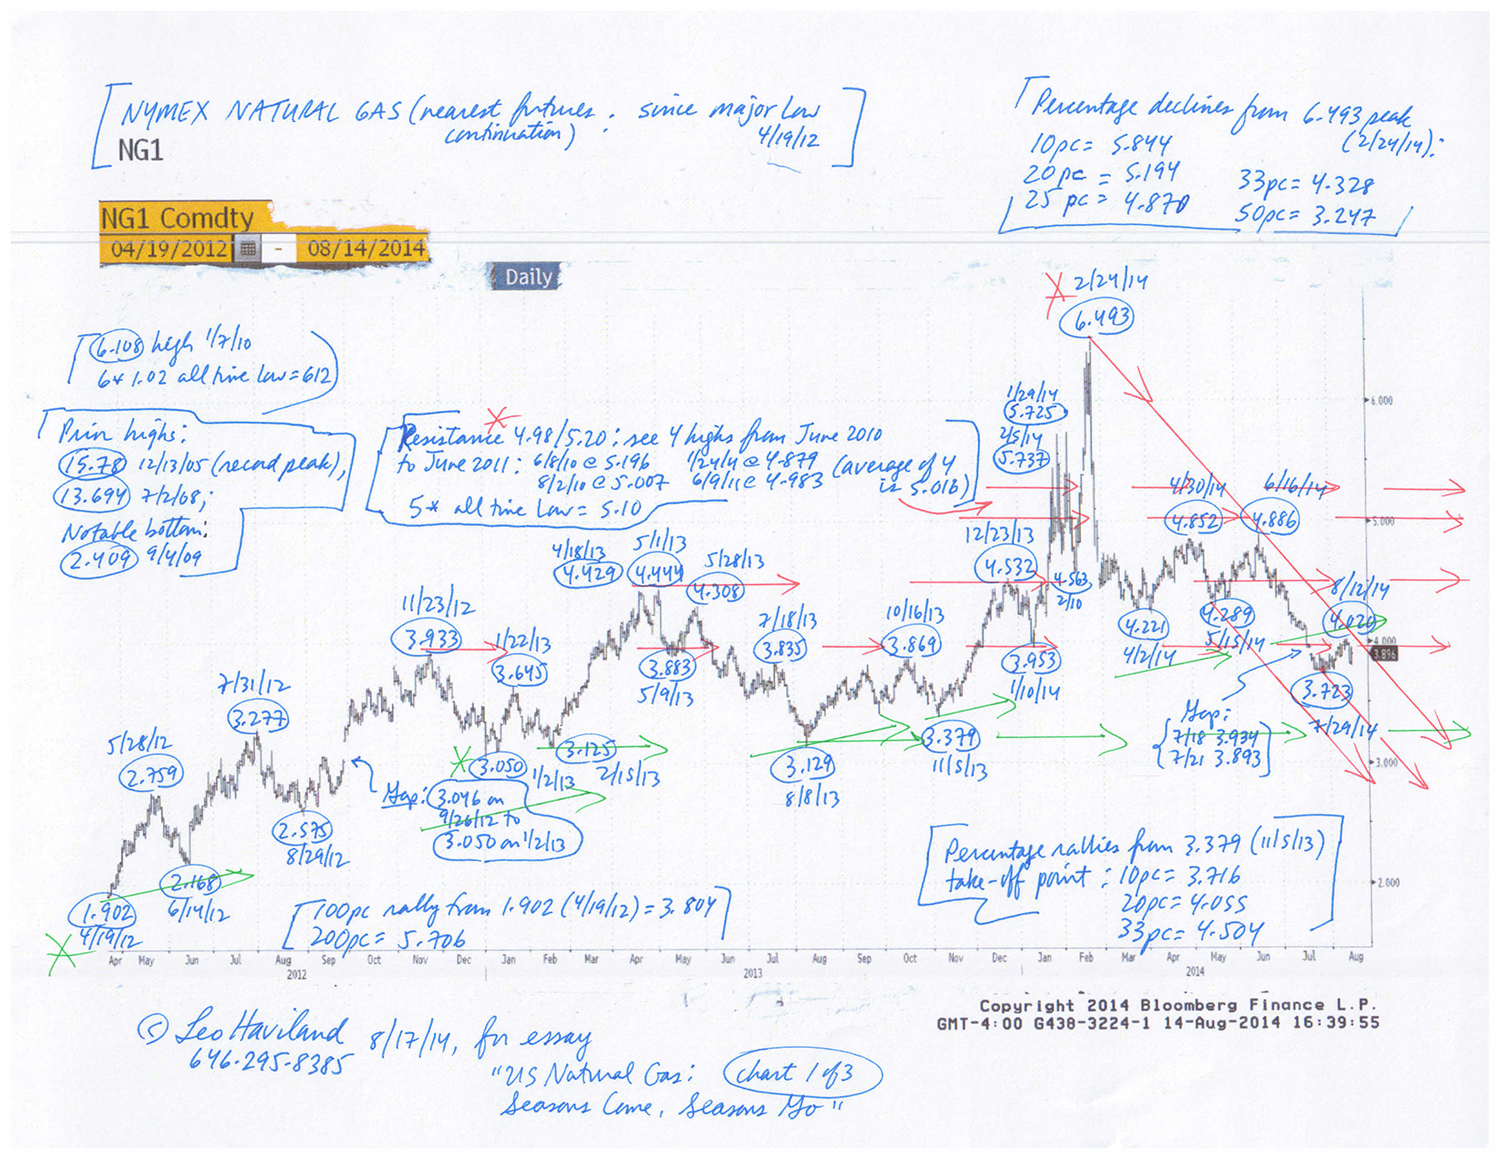 NYMEX NATURAL GAS (nearest futures continuation) : since major low 4/19/12
NG1
Percentage declines from 6.493 peak
(2/24/14):
10pc = 5.844
20pc = 5.194
25pc = 4.870
33pc = 4.328
50pc = 3.247
NG1 Comdty
04/19/2012 - 08/14/2014
Daily
6.108 high 1/7/10
6* 1.02 all time low = 612
Prior highs:
15.78 12/13/05 (record peak),
13.694 7/2/08;
Notable bottom:
2.409 9/4/09
Resistance 4.98/5.20: see 4 highs from June 2010
to June 2011: 6/8/10 @ 5.196 1/24/11 @ 4.879
8/2/10 @ 5.007 6/9/11 @ 4.983
(average of 4
is 5.016)
5* all time low = 5.10
2/24/14
6.493
1/29/14
5.725
2/5/14
5.737
4/30/14
4.852
6/16/14
4.886
12/23/13
4.532
4.563
2/10
8/12/14
4.020
4/18/13
4.429
5/1/13
4.444
5/28/13
4.308
11/23/12
3.933
1/22/13
3.645
3.883
5/9/13
7/18/13
3.835
10/16/13
3.869
3.953
1/10/14
4.221
4/2/14
4.289
5/15/14
3.723
7/29/14
7/31/12
3.277
5/28/12
2.759
3.050
1/2/13
3.125
2/15/13
3.129
8/8/13
3.379
11/5/13
Gap:
7/18 3.934
7/21 3.893
Gap: 3.046 on
9/26/12 to
3.050 on 1/2/13
2.575
8/29/12
2.168
6/14/12
1.902
4/19/12
100pc rally from 1.902 (4/19/12) = 3.804
200pc = 5.706
Percentage rallies from 3.379 (11/5/13)
take-off point: 10pc = 3.716
20pc = 4.055
33pc = 4.504
6.000
5.000
4.000
3.896
3.000
2.000
Apr May Jun Jul Aug Sep Oct Nov Dec Jan Feb Mar Apr May Jun Jul Aug Sep Oct Nov Dec Jan Feb Mar Apr May Jun Jul Aug
2012 2013 2014
Copyright 2014 Bloomberg Finance L.P.
GMT-4:00 G438-3224-1 14-Aug-2014 16:39:55
© Leo Haviland 8/17/14, for essay
646-295-8385
"US Natural Gas:
Seasons Come, Seasons Go"
chart 1 of 3